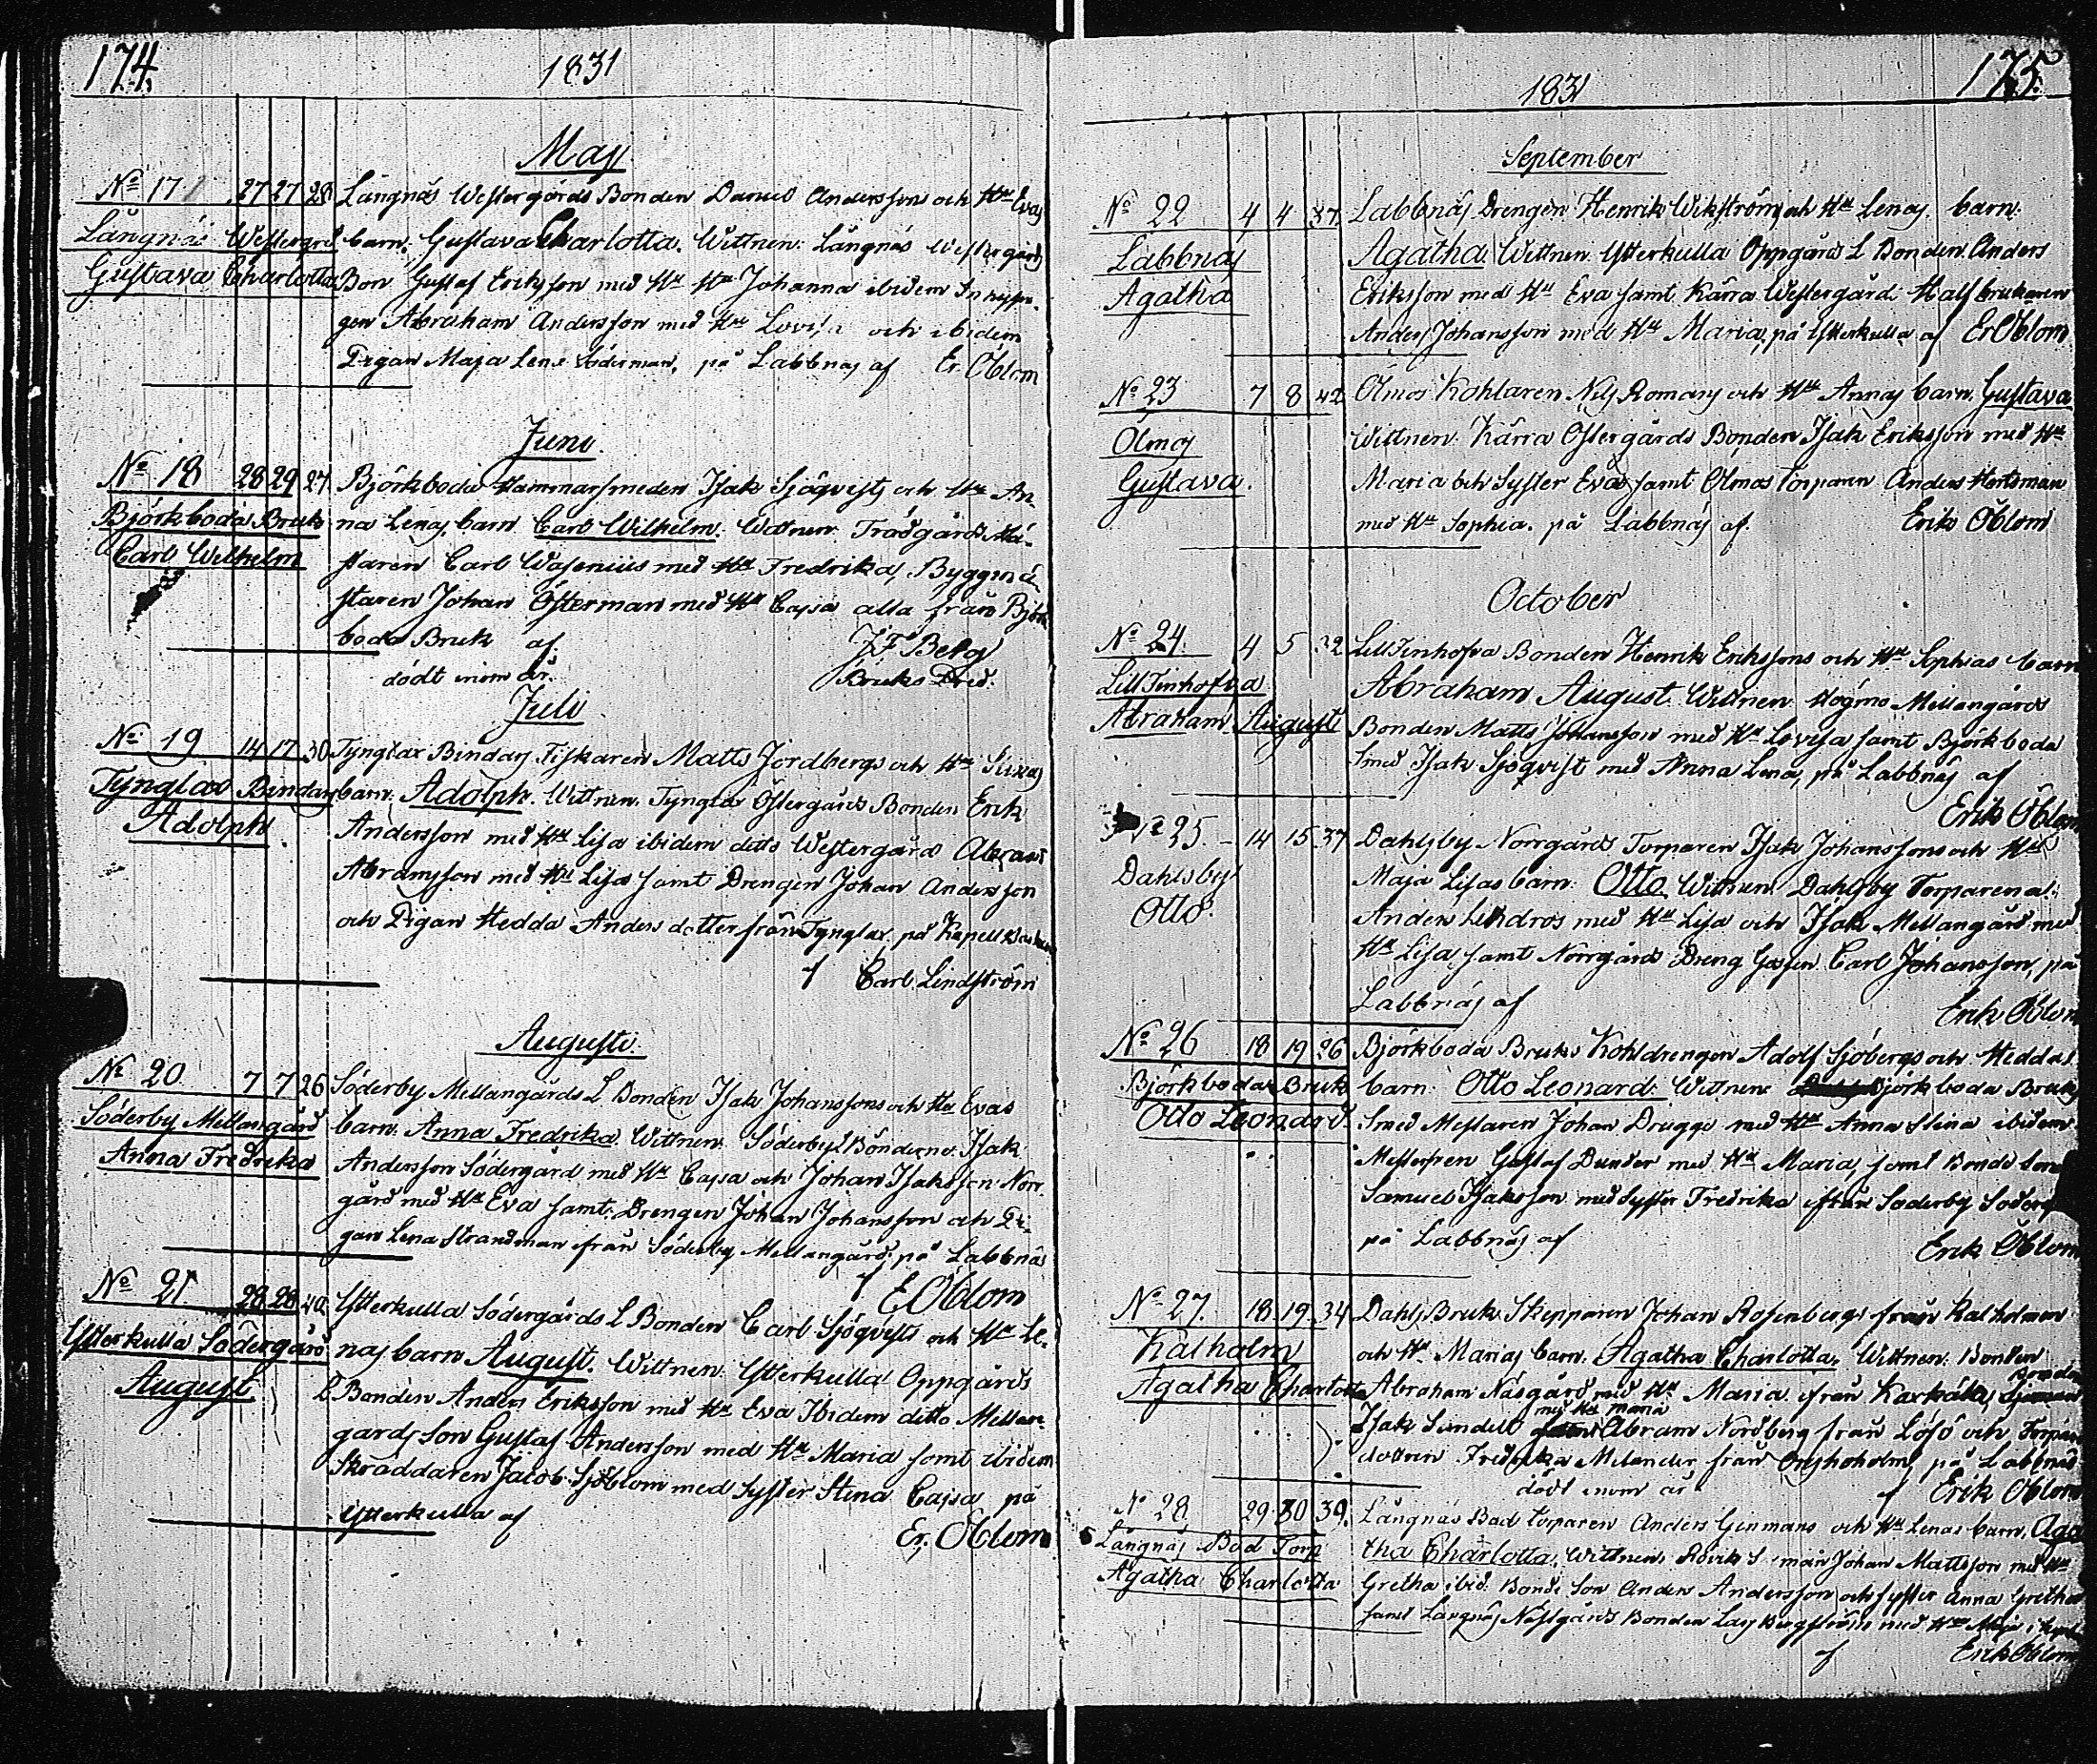 174.
1831
Maji
No 17 27 27 28 Långnäs Westergårds Bonden Daniel Anderssons och Hu Evas
Långnäs Westergrd barn: Gustava Charlotta. Wittnen: Långnäs Westergårds
Gustava Charlotta Bon Gustaf Eriksson med Hu Johanna ibidem
gen Abraham Andersson med Hu Lovisa och ibidem
Pigan Maja Lena Söderman, på Labbnäs af Er. Öblom
Juni
No 18 28 29 27 Björkboda Hammarsmeden Isak Sjöqvists och Hu An-
Björkboda Bruk na Lenas barn Carl Wilhelm. Wittnen Trädgårds Mä-
Carl Wilhelm staren Carl Wasenius med Hu Fredrika, Byggmä-
staren Johan Österman med Hu Cajsa alla från Björk
boda Bruk af. J F Berg
dödt inom år. Bruks Pred.
Juli
No 19 14 17 30 Tynglax Bindas Fiskaren Matts Jordbergs och Hu Stinas
Tynglax Bindas barn: Adolph. Wittnen. Tynglax Östergårds Bonden Erik
Adolph Andersson med Hu Lisa ibidem ditto Westergårds Abram
Abramsson med Hu Lisa samt Drengen Johan Andersson
och Pigan Hedda Andersdotter från Tynglax, på Kapell
f Carl Lindström
Augusti.
No 20 7 7 26 Söderby Mellangårds L Bonden Isak Johanssons och Hu Evas
Söderby Mellangård barn. Anna Fredrika. Wittnen. Söderby L Bönderne. Isak
Anna Fredrika Andersson Södergård med Hu Cajsa och Johan Isaksson Norr-
gård med Hu Eva samt. Drengen Johan Johansson och Pi-
gan Lena Strandman från Söderby Mellangård. på Labbnäs
f E Öblom
No 21 28 28 40 Ytterkulla Södergårds L Bonden Carl Sjöqvists och Hu Le-
Ytterkulla Södergård nas barn August. Wittnen: Ytterkulla Oppgårds
August L Bonden Anders Eriksson med Hu Eva Ibidem ditto Mellan-
gards Son Gustaf Andersson med Hu Maria samt ibidem
Skräddaren Jacob Sjöblom med Syster Stina Cajsa på
Ytterkulla af
Er. Öblom
175.
1831
September
No 22 4 4 37 Labbnäs Drengen Henrik Wikströms och Hu Lenas barn:
Labbnäs Agatha Wittnen. Ytterkulla Oppgårds L Bonden Anders
Agatha Eriksson med Hu Eva samt Kärra Westergård Halfbrukaren
Anders Johansson med Hu Maria, på Ytterkulla af Er Öblom
No 23 7 8 42 Ölmos Kohlaren Nils Romans och Hu Annas barn. Gustava
Ölmos Wittnen: Kärra Östergårds Bonden Isak Eriksson med Hu
Gustava. Maria och Syster Eva samt Ölmos Torparen Anders Hertsman
med Hu Sophia. på Labbnäs af. Erik Öblom
October
No 24. 4 5 32 LillFinhofva Bonden Henrik Erikssons och Hu Sophias barn
LillFinhofva Abraham August. Wittnen. Högmo Mellangårds
Abraham August Bonden Matts Johansson med Hu Lovisa samt Björkboda
Smed Isak Sjöqvist med Anna Lena, på Labbnäs af
Erik Öblom
No 25. 14 15 37 Dahlsby Norrgårds Torparen Isak Johanssons och Hu
Dahlsby Maja Lisas barn: Otto Wittnen. Dahlsby Torparena:
Otto. Anders Lindros med Hu Lisa och Isak Mellangård med
Hu Lisa samt Norrgårds Dreng Gossen Carl Johansson, på
Labbnäs af
Erik Öblom
No 26 18 19 26 Björkboda Bruks Kohldrengen Adolf Sjöbergs och Heddas
Björkboda Bruk barn. Otto Leonard. Wittnen Björkboda Bruks
Otto Leonard. Smed Mästaren Johan Drugge med Hu Anna Stina ibidem
Mestersven Gustaf Dunder med Hu Maria, samt Bonde Sone
Samuel Isaksson med Syster Fredrika ifrån Söderby Söderg
på Labbnäs af
Erik Öblom
No 27. 18 19 34 Dahls Bruk Skepparen Johan Rosenbergs från Kalholmen
Kalholm och Hu Marias barn. Agatha Charlotta. Wittnen: Bonden
Agatha Charlotta Abraham Näsgård med Hu Maria ifrån Karkåla, Bonden
med Hu Maria
Isak Sundell Abram Nordberg från Löfö och Torpare
dottren Fredrika Melander från på Labbnäs
dödt inom år f Erik Öblom
No 28. 29 30 39. Långnäs Bad torparen Anders Ginmans och Hu Lenas barn. Aga
Långnäs Bad Torp tha Charlotta. Wittnen. Rövik Johan Mattsson med Hu
Agatha Charlotta Gretha ibid. Bonde Son Anders Andersson och syster Anna Gretha
samt Långnäs Näsgårds Bonden Lars Bergström med Hu Maja
f Erik Öblom